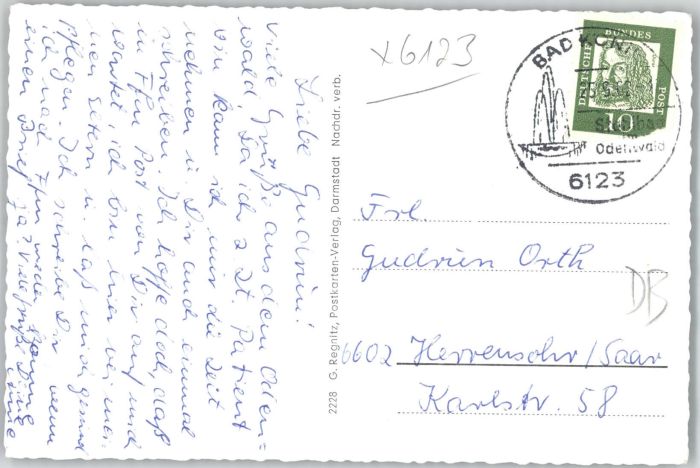 Liebe Gudrun!
Viele Grüße aus dem Oden=
wald. Da ich z. Zt. Patient
bin kann ich mir die Zeit
nehmen u. Dir auch einmal
schreiben. Ich hoffe doch, daß
in Ffm Post von Dir auf mich
wartet, ich bin hier bei mei-
nen Eltern u. laß mich gesund
pflegen. Ich schreibe Dir wenn
ich nach Ffm wieder komme
einen Brief, ja? Viele Grüße Deine
x6123
2228 G. Regnitz, Postkarten-Verlag, Darmstadt Nachdr. verb.
BAD KÖNI
Odenwald
6123
DEUTSCHE BUNDESPOST
10
Frl.
Gudrun Orth
6602 Herrensohr/Saar
Karlstr. 58
DB